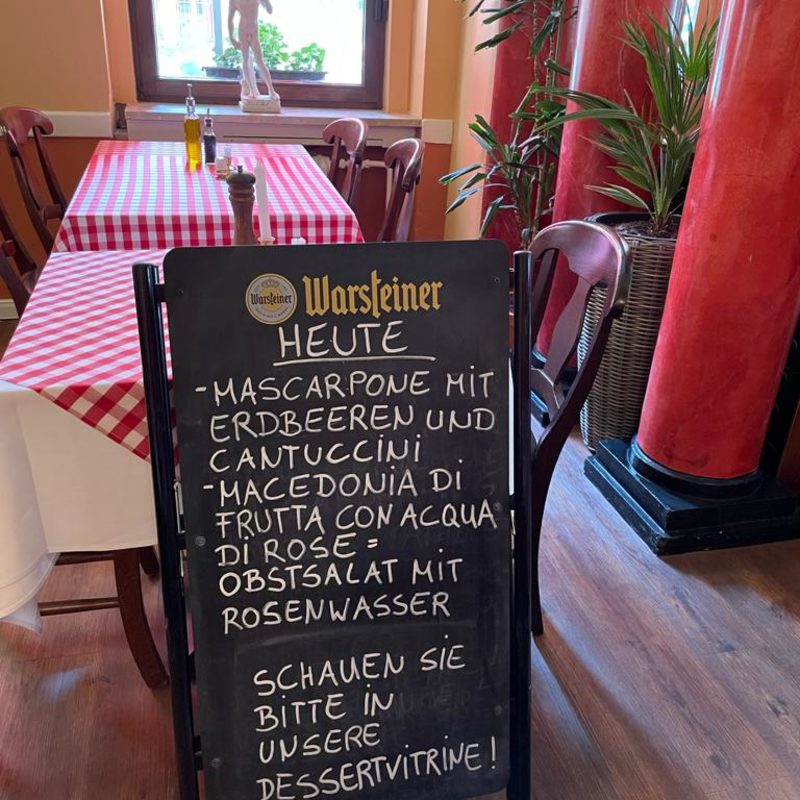 Warsteiner Warsteiner
HEUTE
-MASCARPONE MIT
ERDBEEREN UND
CANTUCCINI
-MACEDONIA DI
FRUTTA CON ACQUA
DI ROSE =
OBSTSALAT MIT
ROSENWASSER
SCHAUEN SIE
BITTE IN
UNSERE
DESSERTVITRINE!